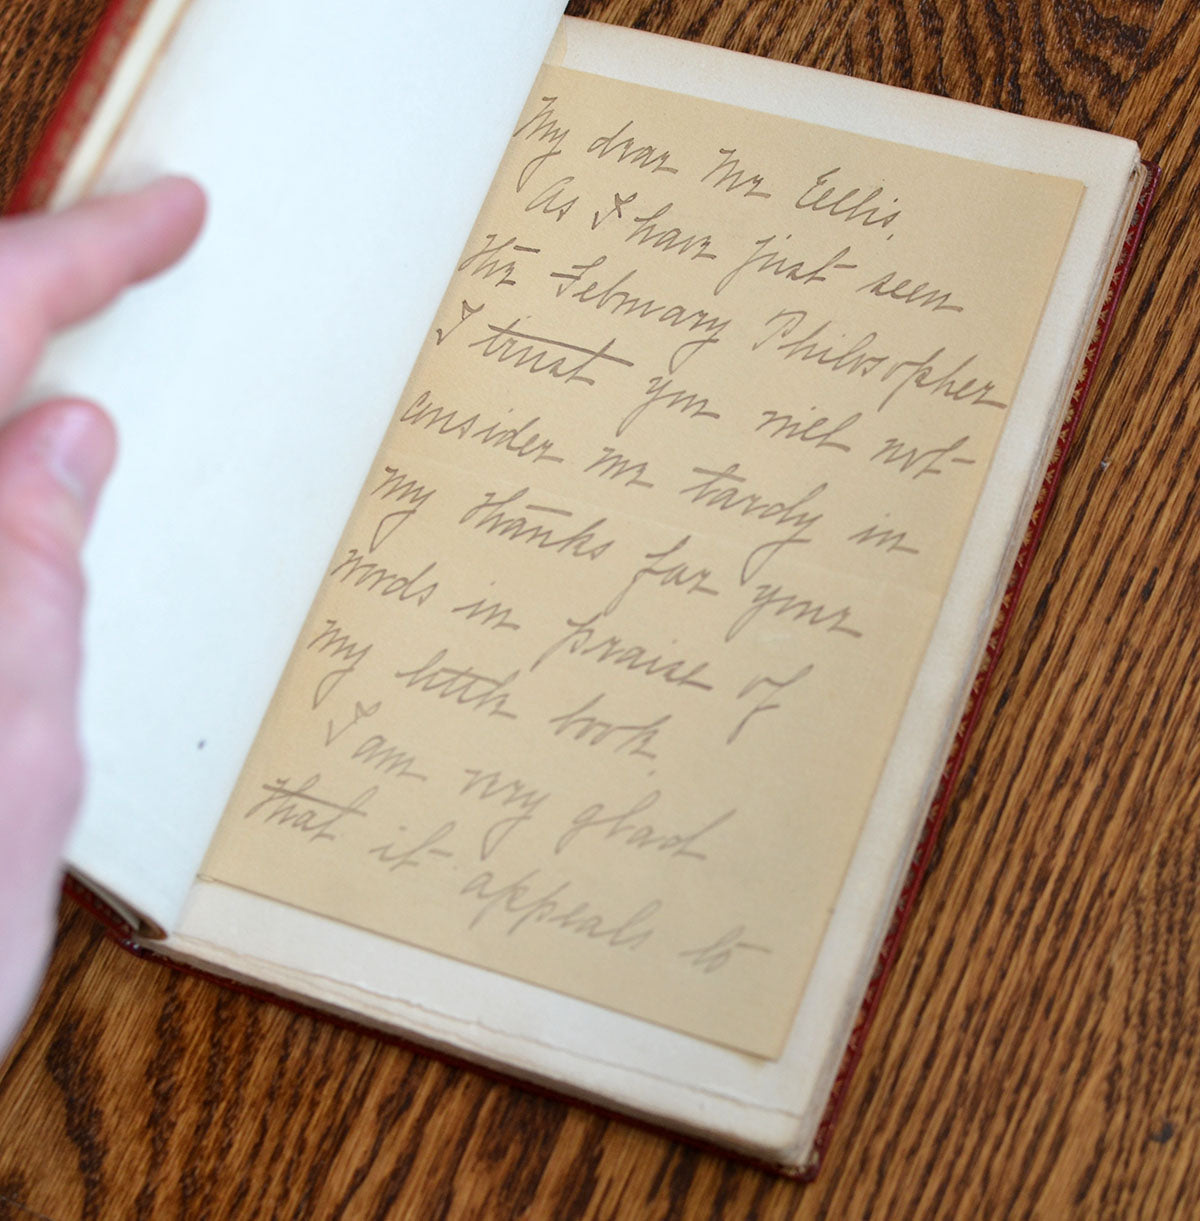 My dear Mr Ellis,
As I have just seen
the February Philosopher
I trust you will not
consider me tardy in
my thanks for your
words in praise of
my little book.
I am very glad
that it appeals to